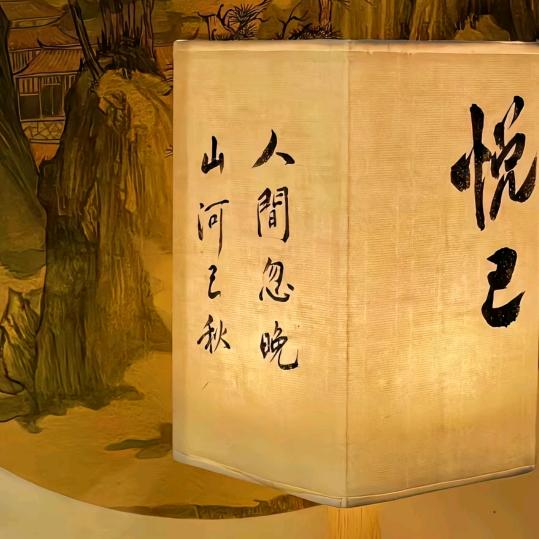 悦己
人間忽晚
山河已秋